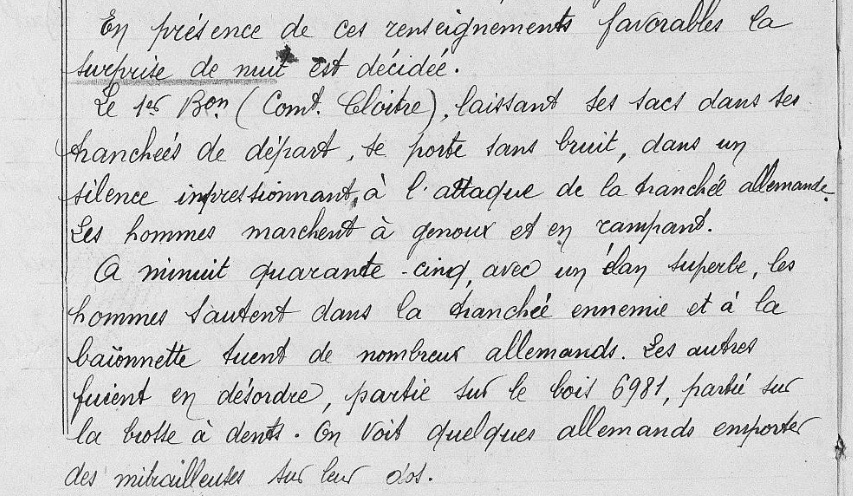 En présence de ces renseignements favorables la
surprise de nuit est décidée.
Le 1er Bon (Comt. Cloitre), laissant ses sacs dans ses
tranchées de départ, se porte sans bruit, dans un
silence impressionnant, à l'attaque de la tranchée allemande.
Les hommes marchent à genoux et en rampant.
A minuit quarante-cinq, avec un élan superbe, les
hommes sautent dans la tranchée ennemie et à la
baïonnette tuent de nombreux allemands. Les autres
fuient en désordre, partie sur le bois 6981, partie sur
la brosse à dents. On voit quelques allemands emporter
des mitrailleuses sur leur dos.